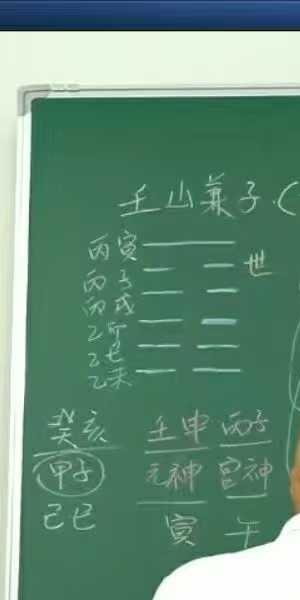 壬山兼子(
丙寅
丙子 世
丙戌
乙卯
乙巳
乙未
癸亥 壬申 丙子
甲子 元神 官神
己巳 寅 午